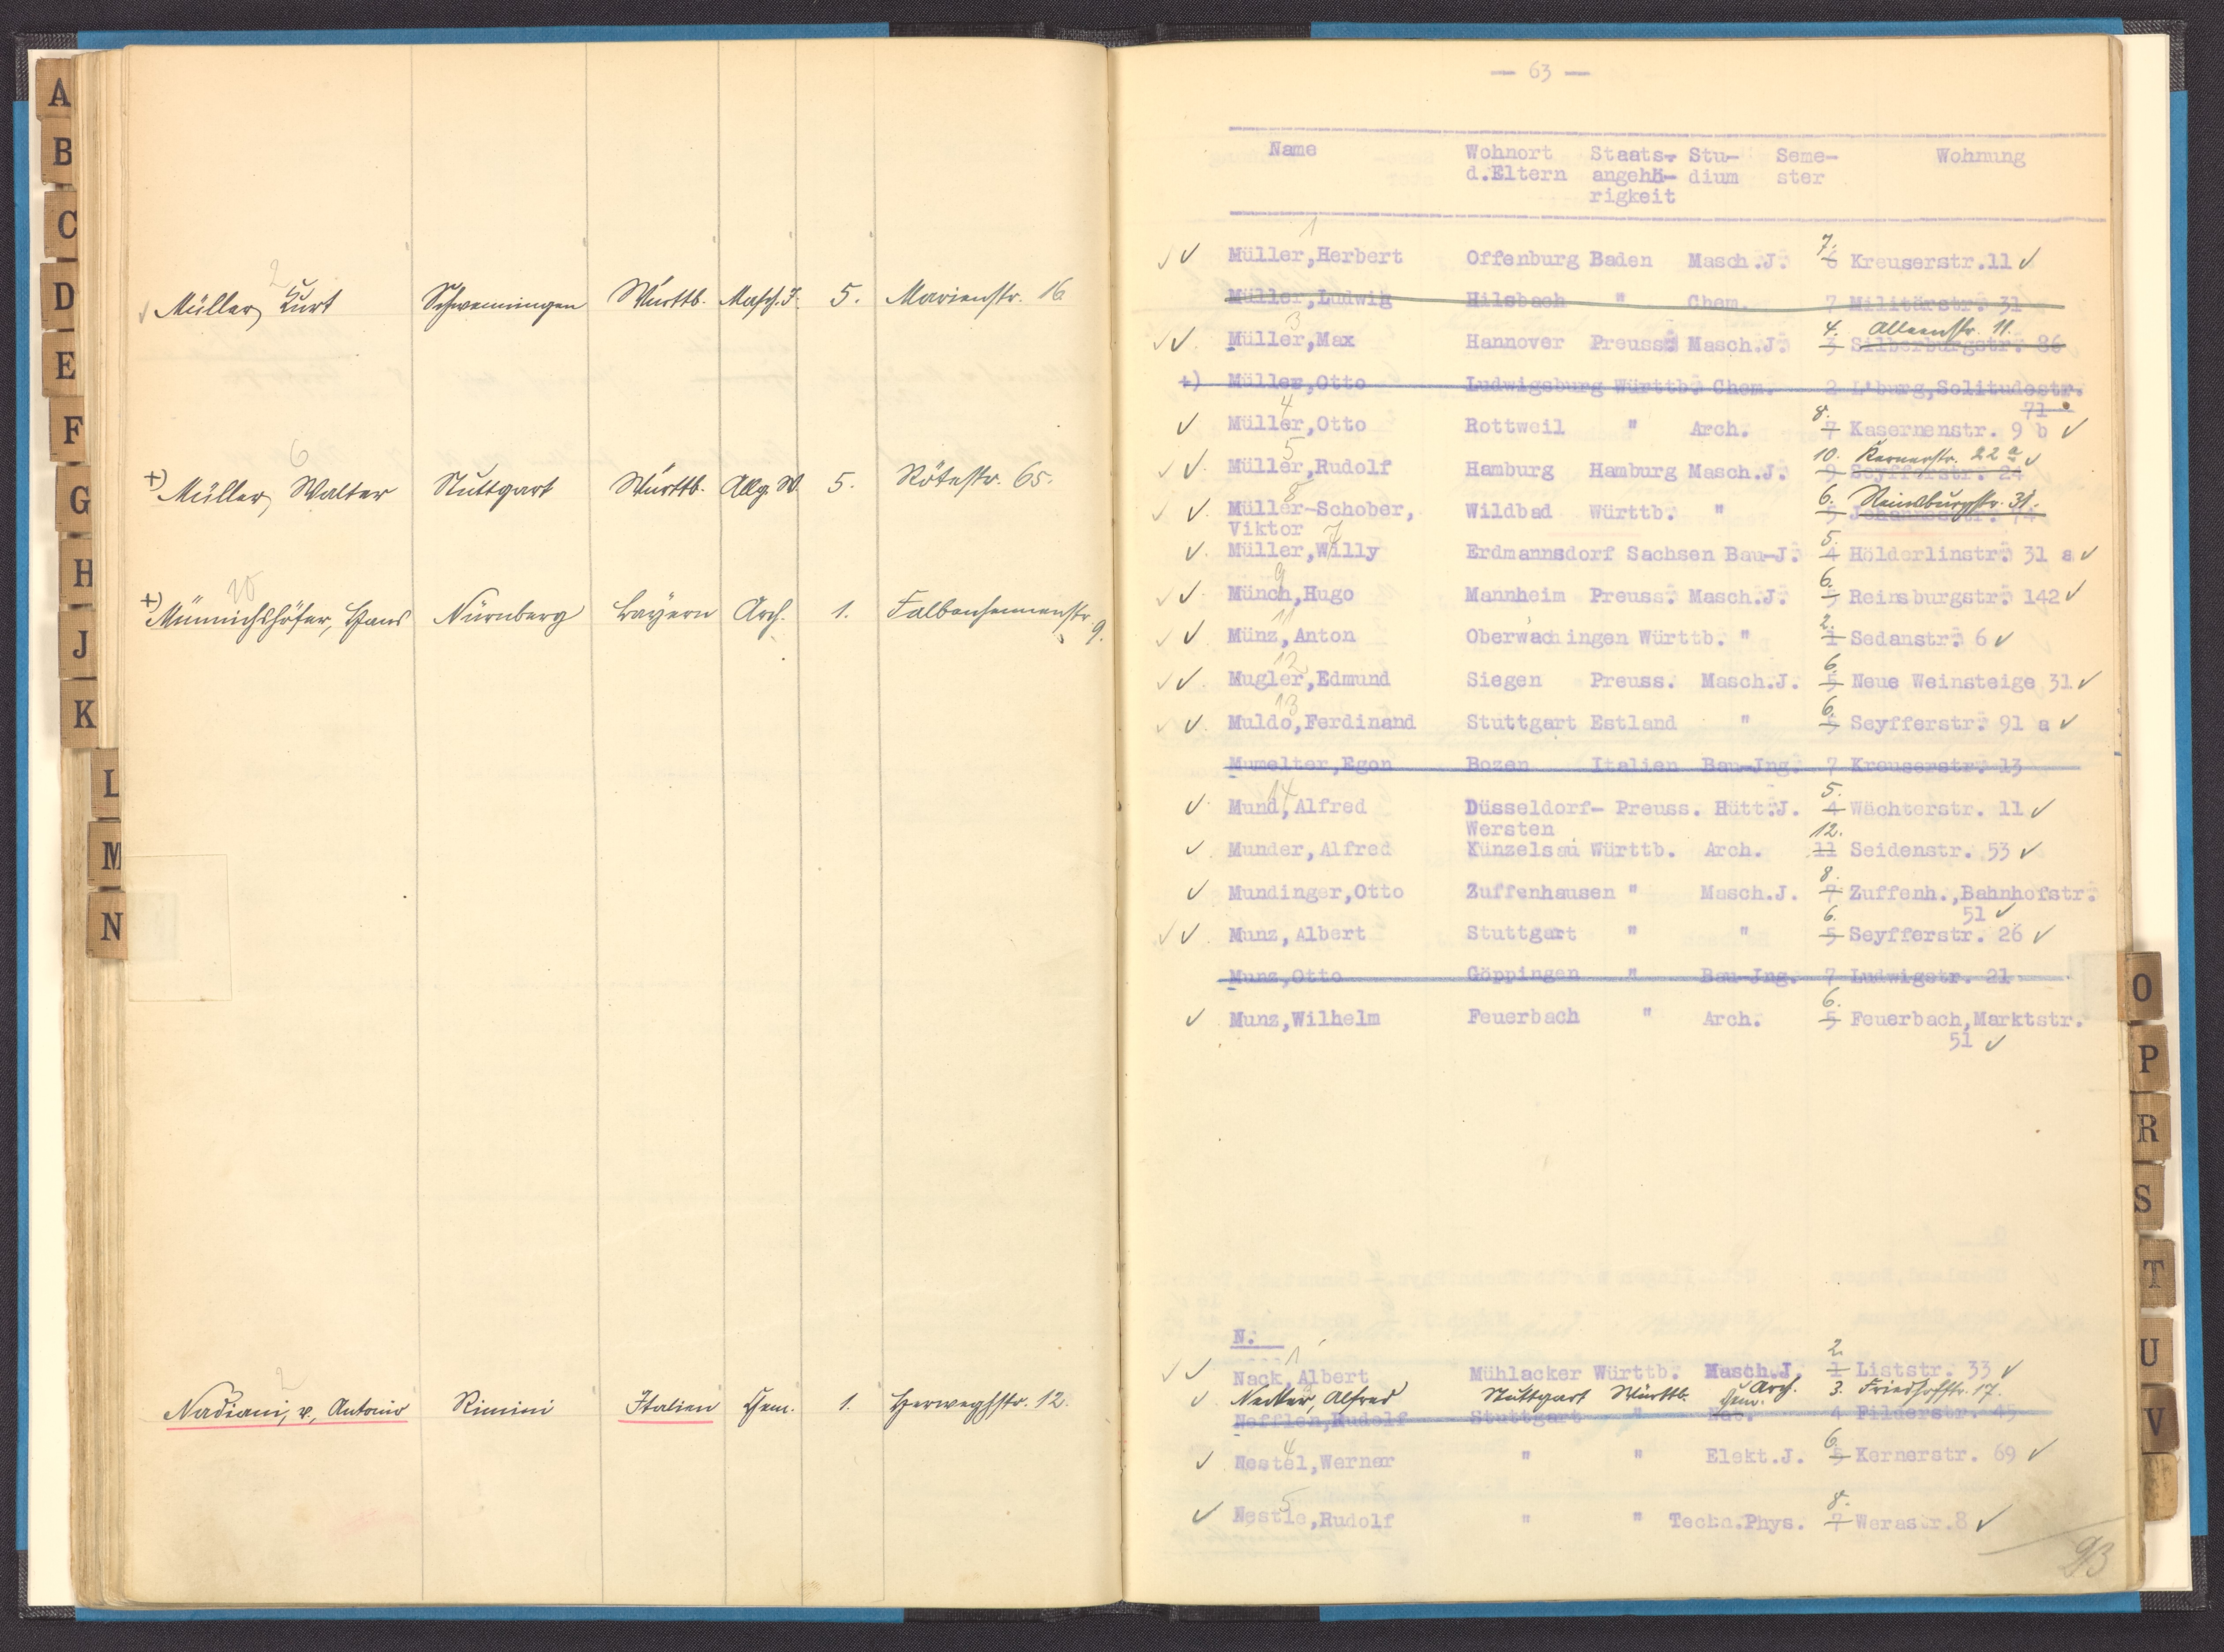 A
B
C
D
E
F
G
H
J
K
L
M
N
2
✓ Müller, Kurt Schwenningen Württb. Masch.J. 5. Marienstr. 16
6
+) Müller, Walter Stuttgart Württb. Allg. W. 5. Rötestr. 65.
10
+) Münnichshöfer, Hans Nürnberg Bayern Arch. 1. Falbenhennenstr. 9.
2
Nadiani, v., Antonio Rimini Italien Chem. 1. Herweghstr. 12.
— 63 —
Name Wohnort Staats- Stu- Seme- Wohnung
d.Eltern angehö- dium ster
rigkeit
1
✓✓ Müller,Herbert Offenburg Baden Masch.J. 7. 6 Kreuserstr.11 ✓
Müller,Ludwig Hilsbach " Chem. 7 Militärstr. 31
3 4. Alleenstr. 11.
✓✓. Müller,Max Hannover Preuss. Masch.J. 3 Silberburgstr. 86
+) Müller,Otto Ludwigsburg Württb. Chem. 2 L'burg,Solitudestr.
71
4 8.
✓ Müller,Otto Rottweil " Arch. 7 Kasernenstr. 9 b ✓
5 10. Kernerstr. 22 a ✓
✓✓. Müller,Rudolf Hamburg Hamburg Masch.J. 9 Seyfferstr. 24
8 6. Reinsburgstr. 31.
✓✓. Müller-Schober, Wildbad Württb. " 5
Viktor
7 5.
✓. Müller,Willy Erdmannsdorf Sachsen Bau-J. 4 Hölderlinstr. 31 a ✓
9 6.
✓✓. Münch,Hugo Mannheim Preuss. Masch.J. 5 Reinsburgstr. 142 ✓
11 2.
✓✓ Münz,Anton Oberwachingen Württb. " 1 Sedanstr. 6 ✓
12 6.
✓✓. Mugler,Edmund Siegen Preuss. Masch.J. 5 Neue Weinsteige 31 ✓
13 6.
✓✓. Muldo,Ferdinand Stuttgart Estland " 5 Seyfferstr. 91 a ✓
Mumelter,Egon Bozen Italien Bau-Jng. 7 Kreuserstr. 13
14 5.
✓. Mund,Alfred Düsseldorf- Preuss. Hütt.J. 4 Wächterstr. 11 ✓
Wersten 12.
✓. Munder,Alfred Künzelsau Württb. Arch. 11 Seidenstr. 53 ✓
8.
✓ Mundinger,Otto Zuffenhausen " Masch.J. 7 Zuffenh.,Bahnhofstr.
6. 51 ✓
✓✓. Munz,Albert Stuttgart " " 5 Seyfferstr. 26 ✓
Munz,Otto Göppingen " Bau-Jng. 7 Ludwigstr. 21
6.
✓ Munz,Wilhelm Feuerbach " Arch. 5 Feuerbach,Marktstr.
51 ✓
N.
1 2.
✓✓ Nack,Albert Mühlacker Württb. Masch.J. 1 Liststr. 33 ✓
✓ Necker, Alfred Stuttgart Württb. Chem. Arch. 3. Friedhofstr. 17.
Nefflen,Rudolf Stuttgart " 4 Filderstr. 45
4 6
✓ Nestel,Werner " " Elekt.J. 5 Kernerstr. 69 ✓
5 8.
✓ Nestle,Rudolf " " Techn.Phys. 7 Werastr.8 ✓
93
O
P
R
S
T
U
V